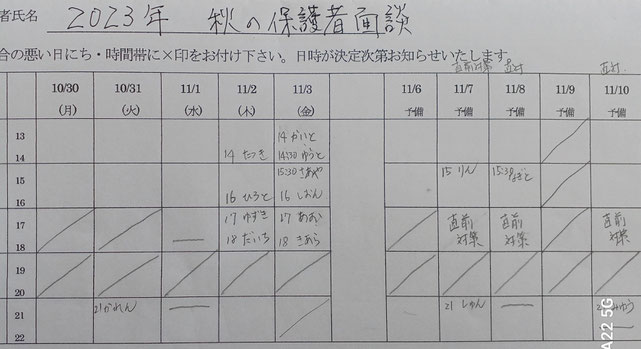 者氏名 2023年 秋の保護者面談
合の悪い日にち・時間帯に×印をお付け下さい。日時が決定次第お知らせいたします。
直前対策 直対 直対
10/30 10/31 11/1 11/2 11/3 11/6 11/7 11/8 11/9 11/10
(月) (火) (水) (木) (金) 予備 予備 予備 予備 予備
13 14かいと
14 14たつき 14:30ゆうと
15 15:30さあや 15りん 15:30なぎと
16 16ひろと 16しおん
17 17ゆずき 17あおい 直前 直前 直前
18 18だいち 18きあら 対策 対策 対策
19
20
21 21かれん 21しゅん みゆう
22
A22 5G